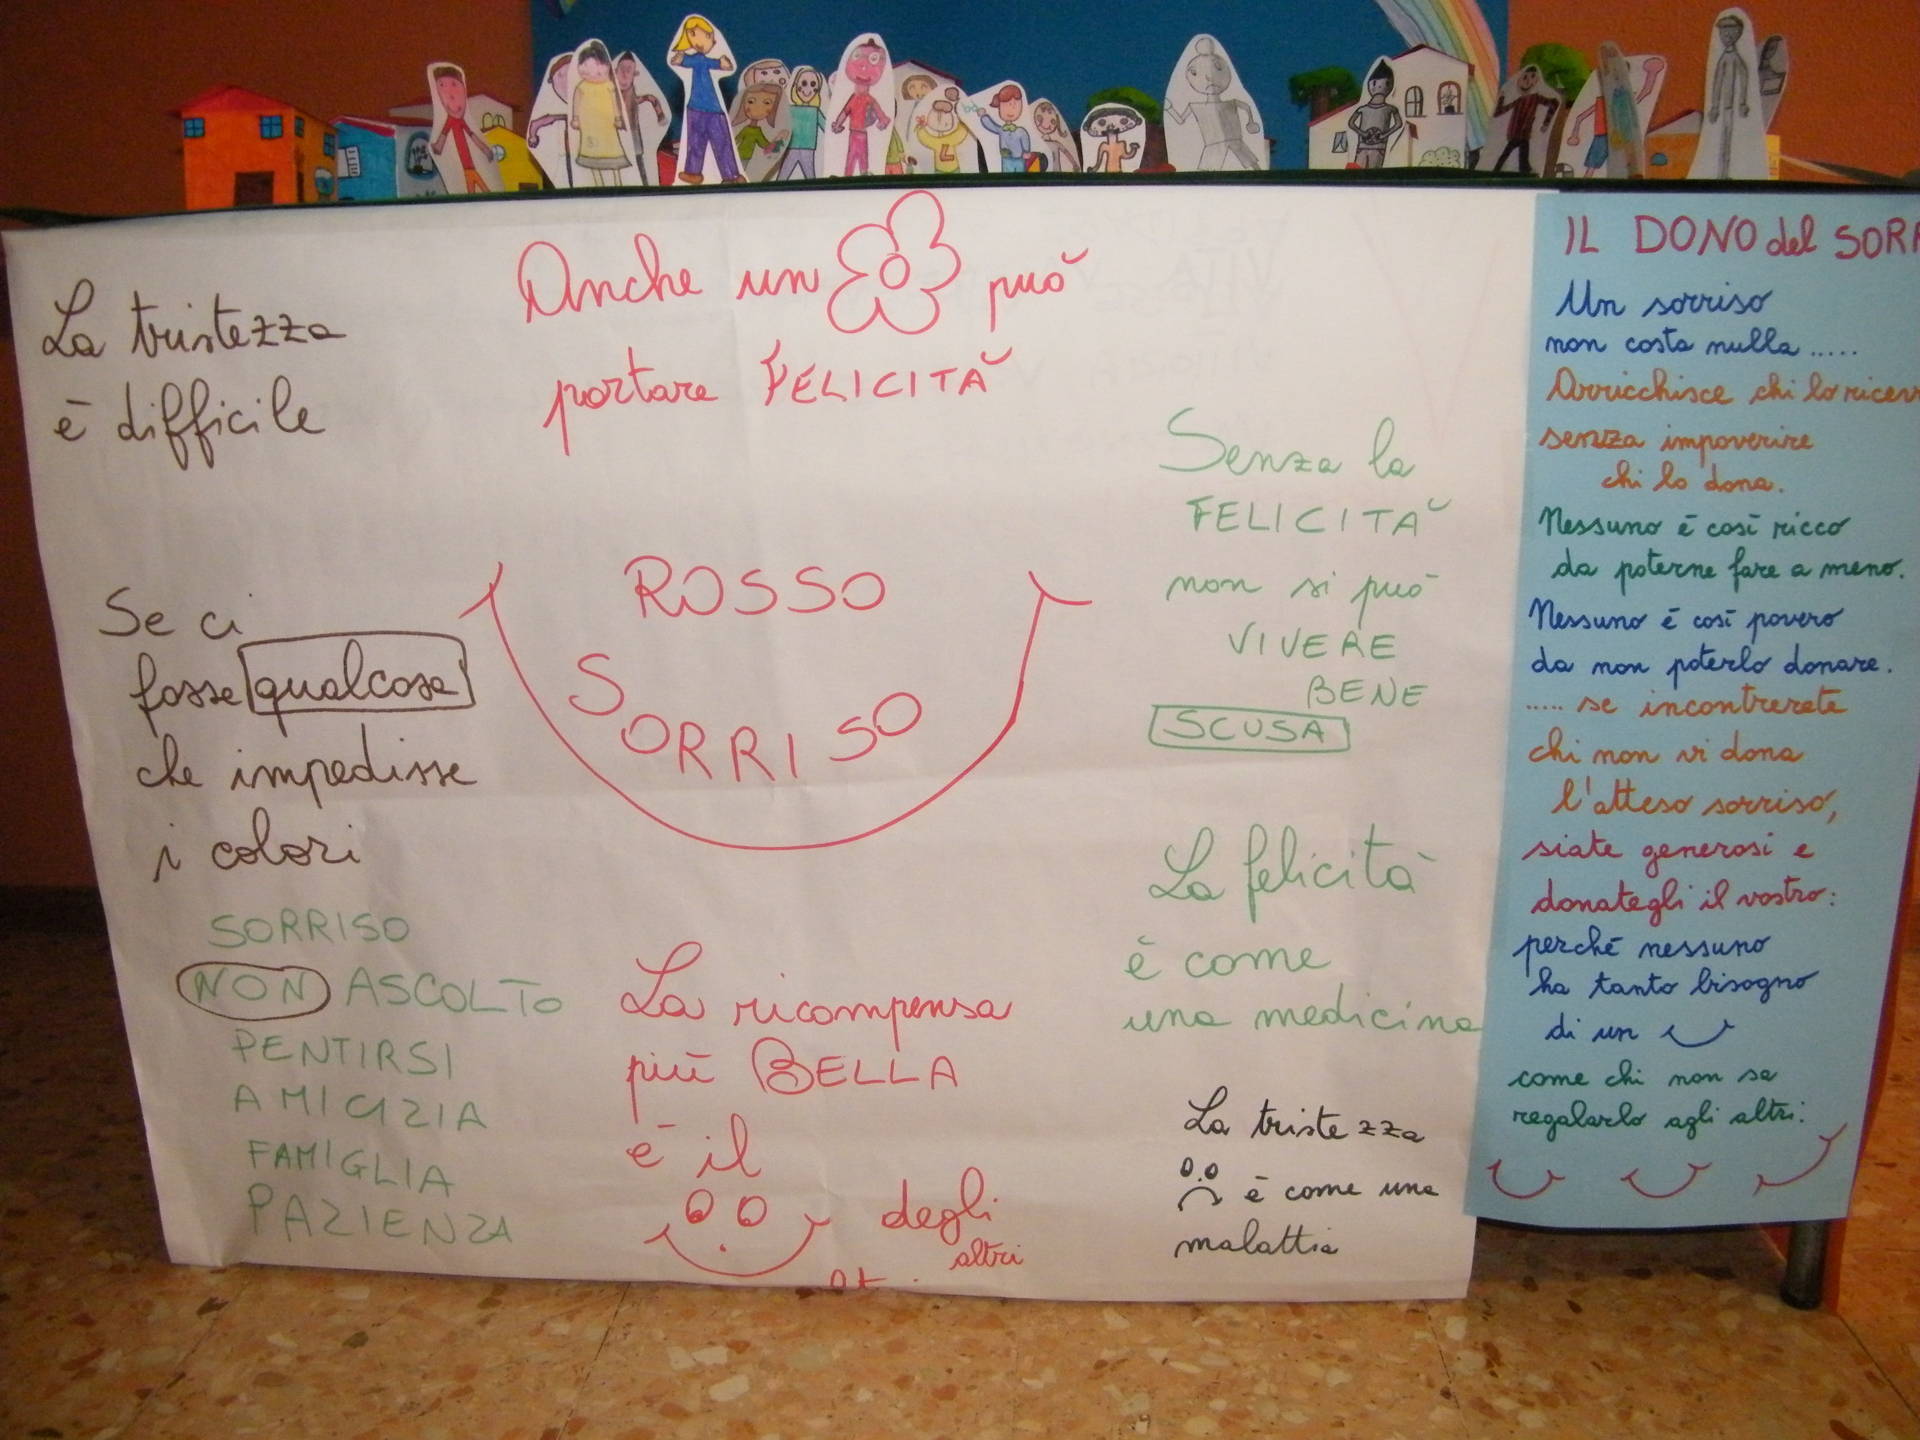 La tristezza
è difficile
Anche un può
portare FELICITÀ
Se ci
fosse qualcosa
che impedisse
i colori
ROSSO
SORRISO
Senza la
FELICITÀ
non si può
VIVERE
BENE
SCUSA
SORRISO
NON ASCOLTO
PENTIRSI
AMICIZIA
FAMIGLIA
PAZIENZA
La ricompensa
più BELLA
è il
degli
altri
La felicità
è come
una medicina
La tristezza
è come una
malattia
IL DONO del SORR
Un sorriso
non costa nulla .....
Arricchisce chi lo ricev
senza impoverire
chi lo dona.
Nessuno è così ricco
da poterne fare a meno.
Nessuno è così povero
da non poterlo donare.
..... se incontrerete
chi non vi dona
l'atteso sorriso,
siate generosi e
donategli il vostro:
perché nessuno
ha tanto bisogno
di un
come chi non sa
regalarlo agli altri.